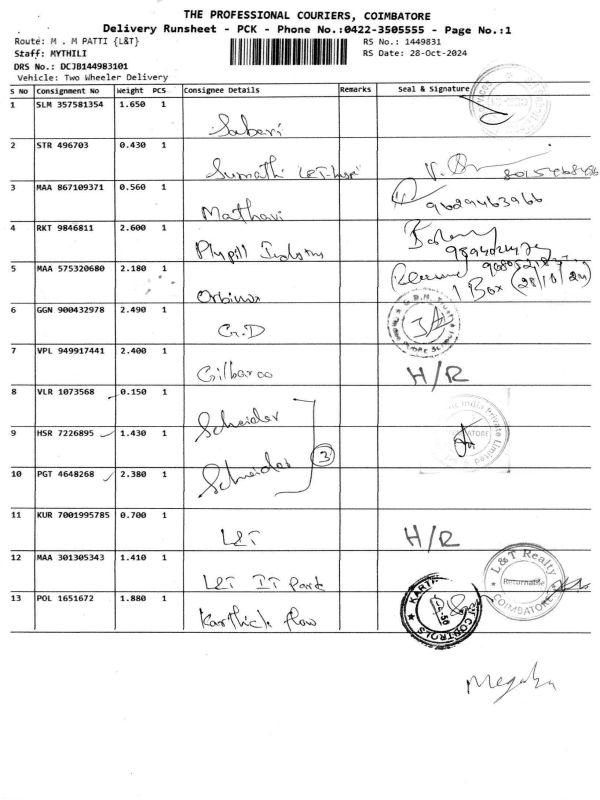 THE PROFESSIONAL COURIERS, COIMBATORE
Delivery Runsheet - PCK - Phone No.:0422-3505555 - Page No.:1
Route: M . M PATTI {L&T} RS No.: 1449831
Staff: MYTHILI RS Date: 28-Oct-2024
DRS No.: DCJB144983101
Vehicle: Two Wheeler Delivery
S No Consignment No Weight PCS Consignee Details Remarks Seal & Signature
1 SLM 357581354 1.650 1 Saberi
2 STR 496703 0.430 1 Sumathi L&T
3 MAA 867109371 0.560 1 Mathavi 9629463966
4 RKT 9846811 2.600 1 Industry
5 MAA 575320680 2.180 1 Received 1 Box (28/10/24)
6 GGN 900432978 2.490 1 G.D
7 VPL 949917441 2.400 1 Gilbarco H/R
8 VLR 1073568 0.150 1 Scheider
9 HSR 7226895 1.430 1 India Private Limited
3
10 PGT 4648268 2.380 1 Schneider
11 KUR 7001995785 0.700 1 L&T H/R
12 MAA 301305343 1.410 1 L&T IT Park L&T Realty Returnable COIMBATORE
13 POL 1651672 1.880 1 Karthick flow CONTROLS